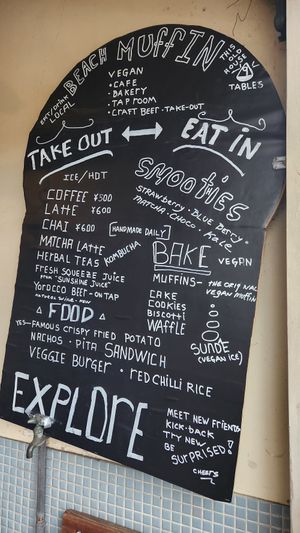 BEACH MUFFIN
EAT/DRINK
LOCAL
VEGAN
• CAFE
• BAKERY
• TAP ROOM
• CRAFT BEER • TAKE-OUT
THIS
HOUSE
TABLES
TAKE OUT ↔ EAT IN
ICE/HOT
COFFEE ¥500
LATTE ¥600
CHAI ¥600
MATCHA LATTE
HERBAL TEAS
KOMBUCHA
HANDMADE DAILY
FRESH SQUEEZE JUICE
"SUNSHINE JUICE"
YOROCCO BEER - ON TAP
NATURAL WINE
SMOOTIES
STRAWBERRY • BLUE BERRY
MATCHA • CHOCO • KALE
BAKE VEGAN
MUFFINS - THE ORIGINAL
VEGAN MUFFIN
CAKE
COOKIES
BISCOTTI
WAFFLE
SUNDE
(VEGAN ICE)
FOOD
YES - FAMOUS CRISPY FRIED POTATO
NACHOS • PITA SANDWICH
VEGGIE BURGER • RED CHILLI RICE
EXPLORE
MEET NEW FRIENDS
KICK-BACK
TRY NEW
BE SURPRISED!
CHEERS